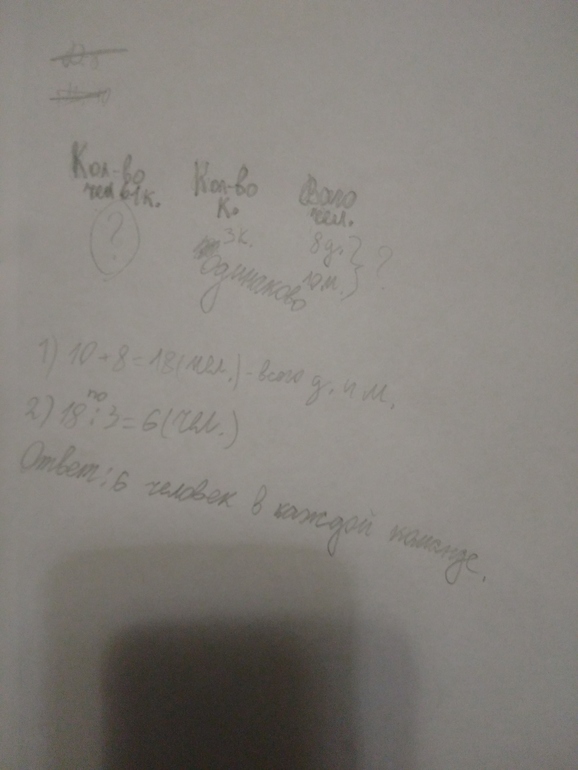 Кол-во Кол-во Всего
чел в 1к. к. чел.
? 3к. 8д. ?
Одинаково 10м.
1) 10+8=18(чел.)-всего д. и м.
по
2) 18:3=6(чел.)
Ответ: 6 человек в каждой команде.